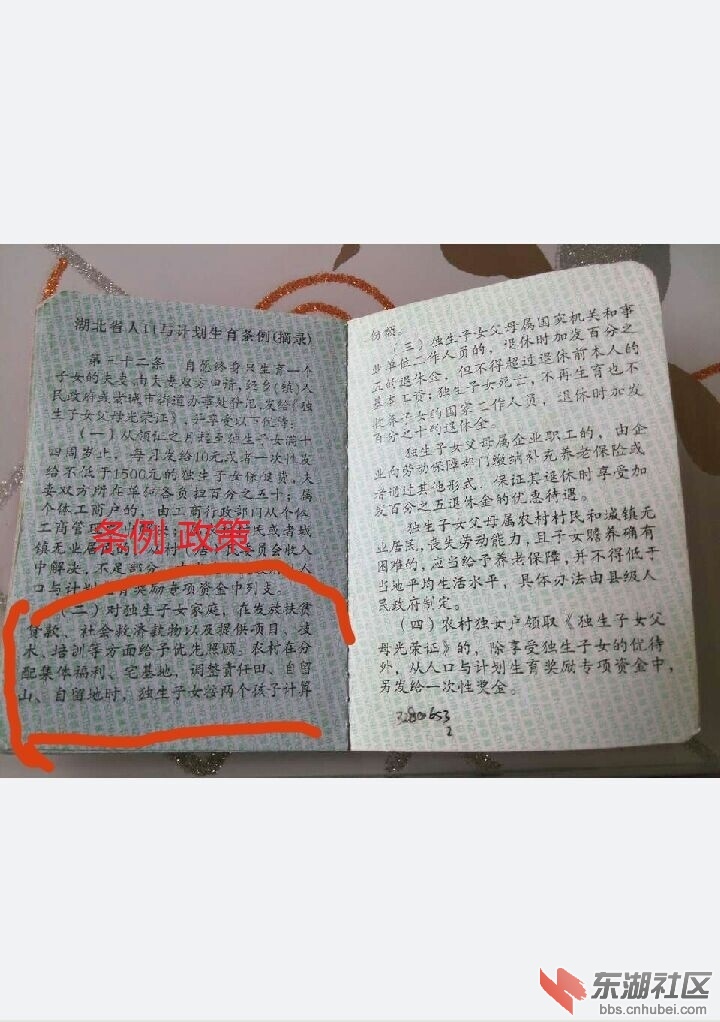 湖北省人口与计划生育条例(摘录)
第三十二条 自愿终身只生育一个
子女的夫妻,由夫妻双方申请,经乡(镇)人
民政府或者城市街道办事处登记,发给《独
生子女父母光荣证》,并享受以下优待:
(一)从领证之月起至独生子女满十
四周岁止,每月发给10元或者一次性发
给不低于1500元的独生子女保健费,夫
妻双方所在单位各负担百分之五十;属
个体工商户的,由工商行政部门从个体
工商管理
条例 政策
民或者城
镇无业居民的
村
居
委员会收入
中解决,不足部分
人
口与计划生育奖励专项资金中列支。
(二)对独生子女家庭,在发放扶贫
贷款、社会救济款物以及提供项目、技
术、培训等方面给予优先照顾。农村在分
配集体福利、宅基地,调整责任田、自留
山、自留地时,独生子女按两个孩子计算
份额。
(三)独生子女父母属国家机关和事
业单位工作人员的,退休时加发百分之
五的退休金,但不得超过退休前本人的
基本工资;独生子女死亡,不再生育也不
收养子女的国家工作人员,退休时加发
百分之十的退休金。
独生子女父母属企业职工的,由企
业向劳动保障部门缴纳补充养老保险或
者通过其他形式,保证其退休时享受加
发百分之五退休金的优惠待遇。
独生子女父母属农村村民和城镇无
业居民,丧失劳动能力,且子女赡养确有
困难的,应当给予养老保障,并不得低于
当地平均生活水平,具体办法由县级人
民政府制定。
(四)农村独女户领取《独生子女父
母光荣证》的,除享受独生子女的优待
外,从人口与计划生育奖励专项资金中,
另发给一次性奖金。
东湖社区
bbs.cnhubei.com